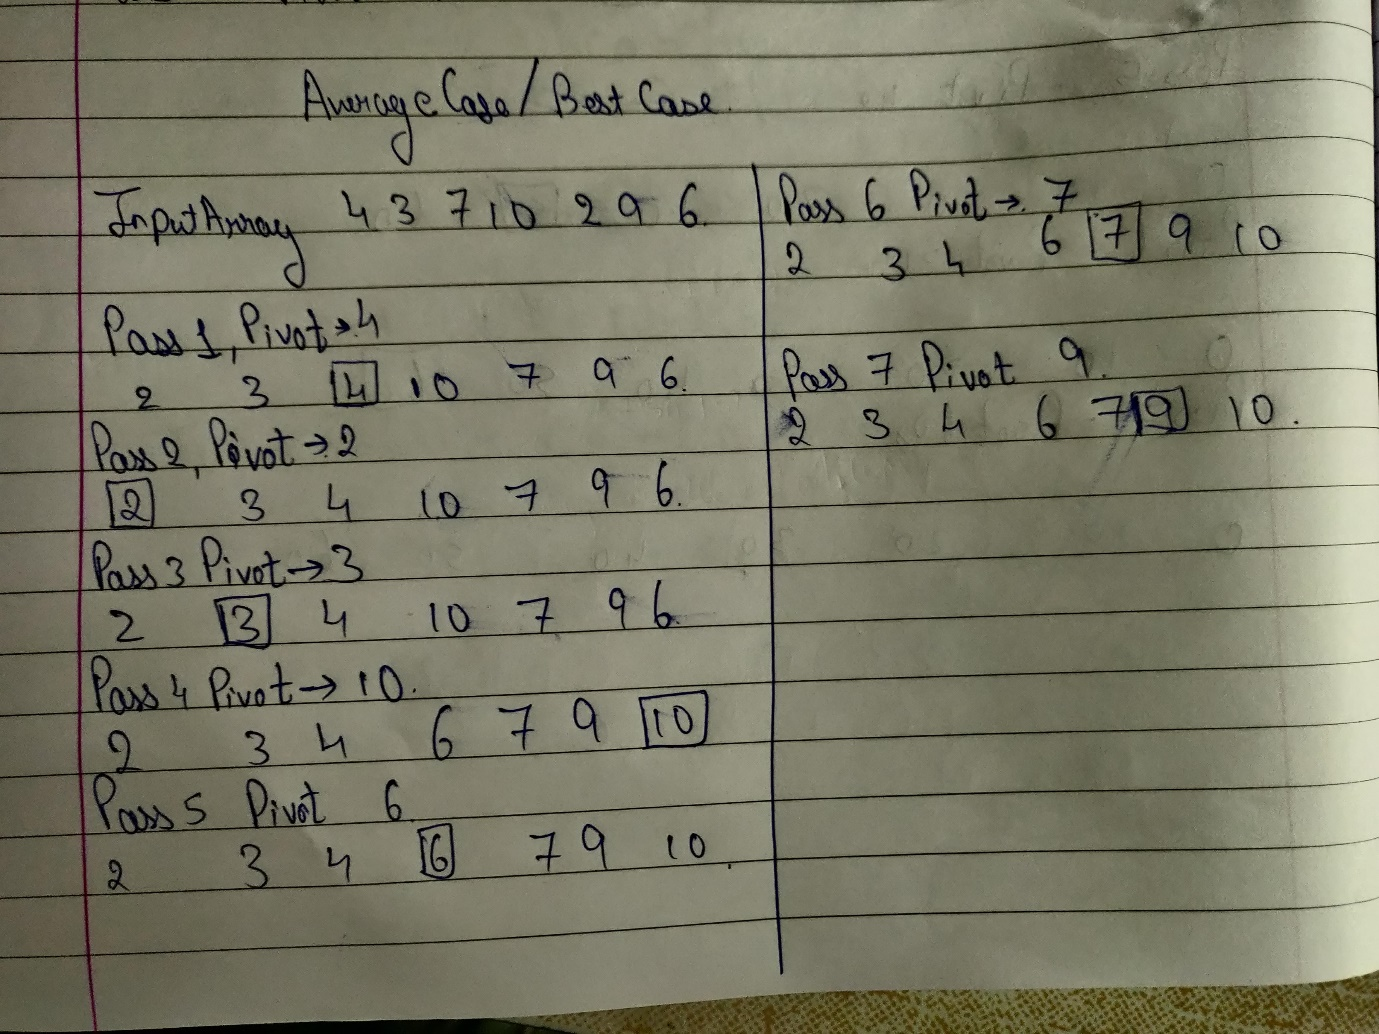 Average Case/Best Case.
Input Array 4 3 7 10 2 9 6.
Pass 1, Pivot → 4
2 3 4 10 7 9 6.
Pass 2, Pivot → 2
2 3 4 10 7 9 6.
Pass 3 Pivot → 3
2 3 4 10 7 9 6.
Pass 4 Pivot → 10.
2 3 4 6 7 9 10
Pass 5 Pivot 6
2 3 4 6 7 9 10.
Pass 6 Pivot → 7
2 3 4 6 7 9 10
Pass 7 Pivot 9.
2 3 4 6 7 9 10.